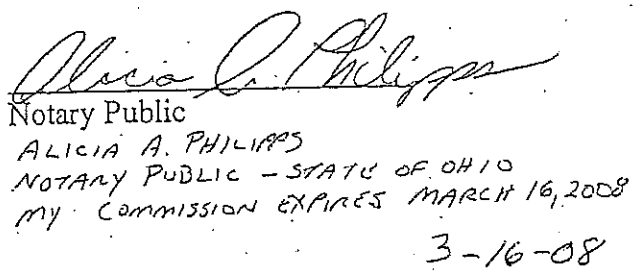 Alicia A. Philipps
Notary Public
ALICIA A. PHILIPPS
NOTARY PUBLIC - STATE OF OHIO
MY COMMISSION EXPIRES MARCH 16, 2008
3-16-08